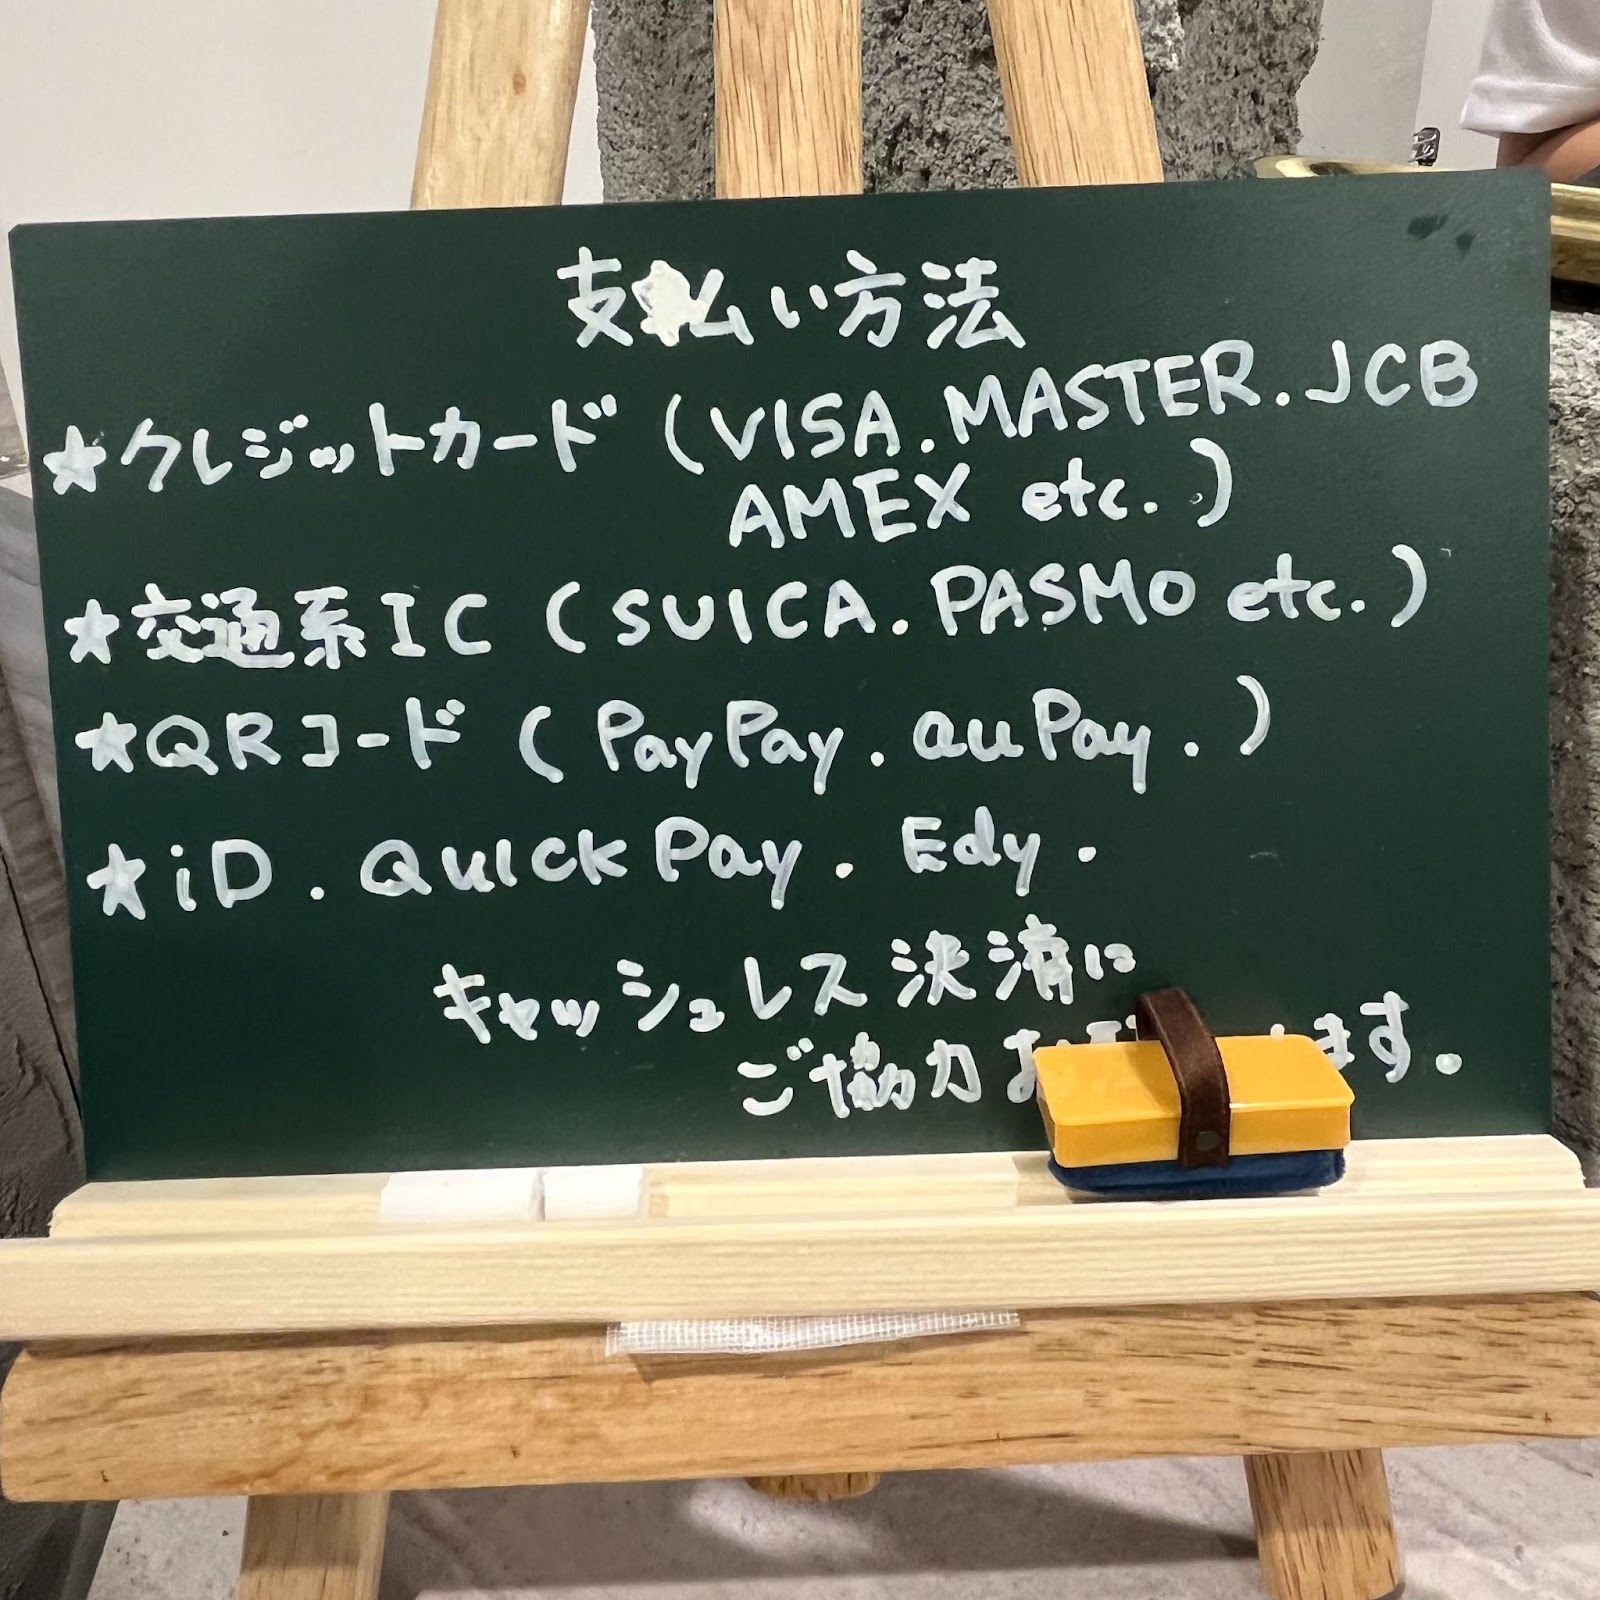 支払い方法
★クレジットカード (VISA.MASTER.JCB
AMEX etc.)
★交通系IC (SUICA.PASMO etc.)
★QRコード (PayPay.auPay.)
★iD.QUICKPay.Edy.
キャッシュレス決済に
ご協力お ます。